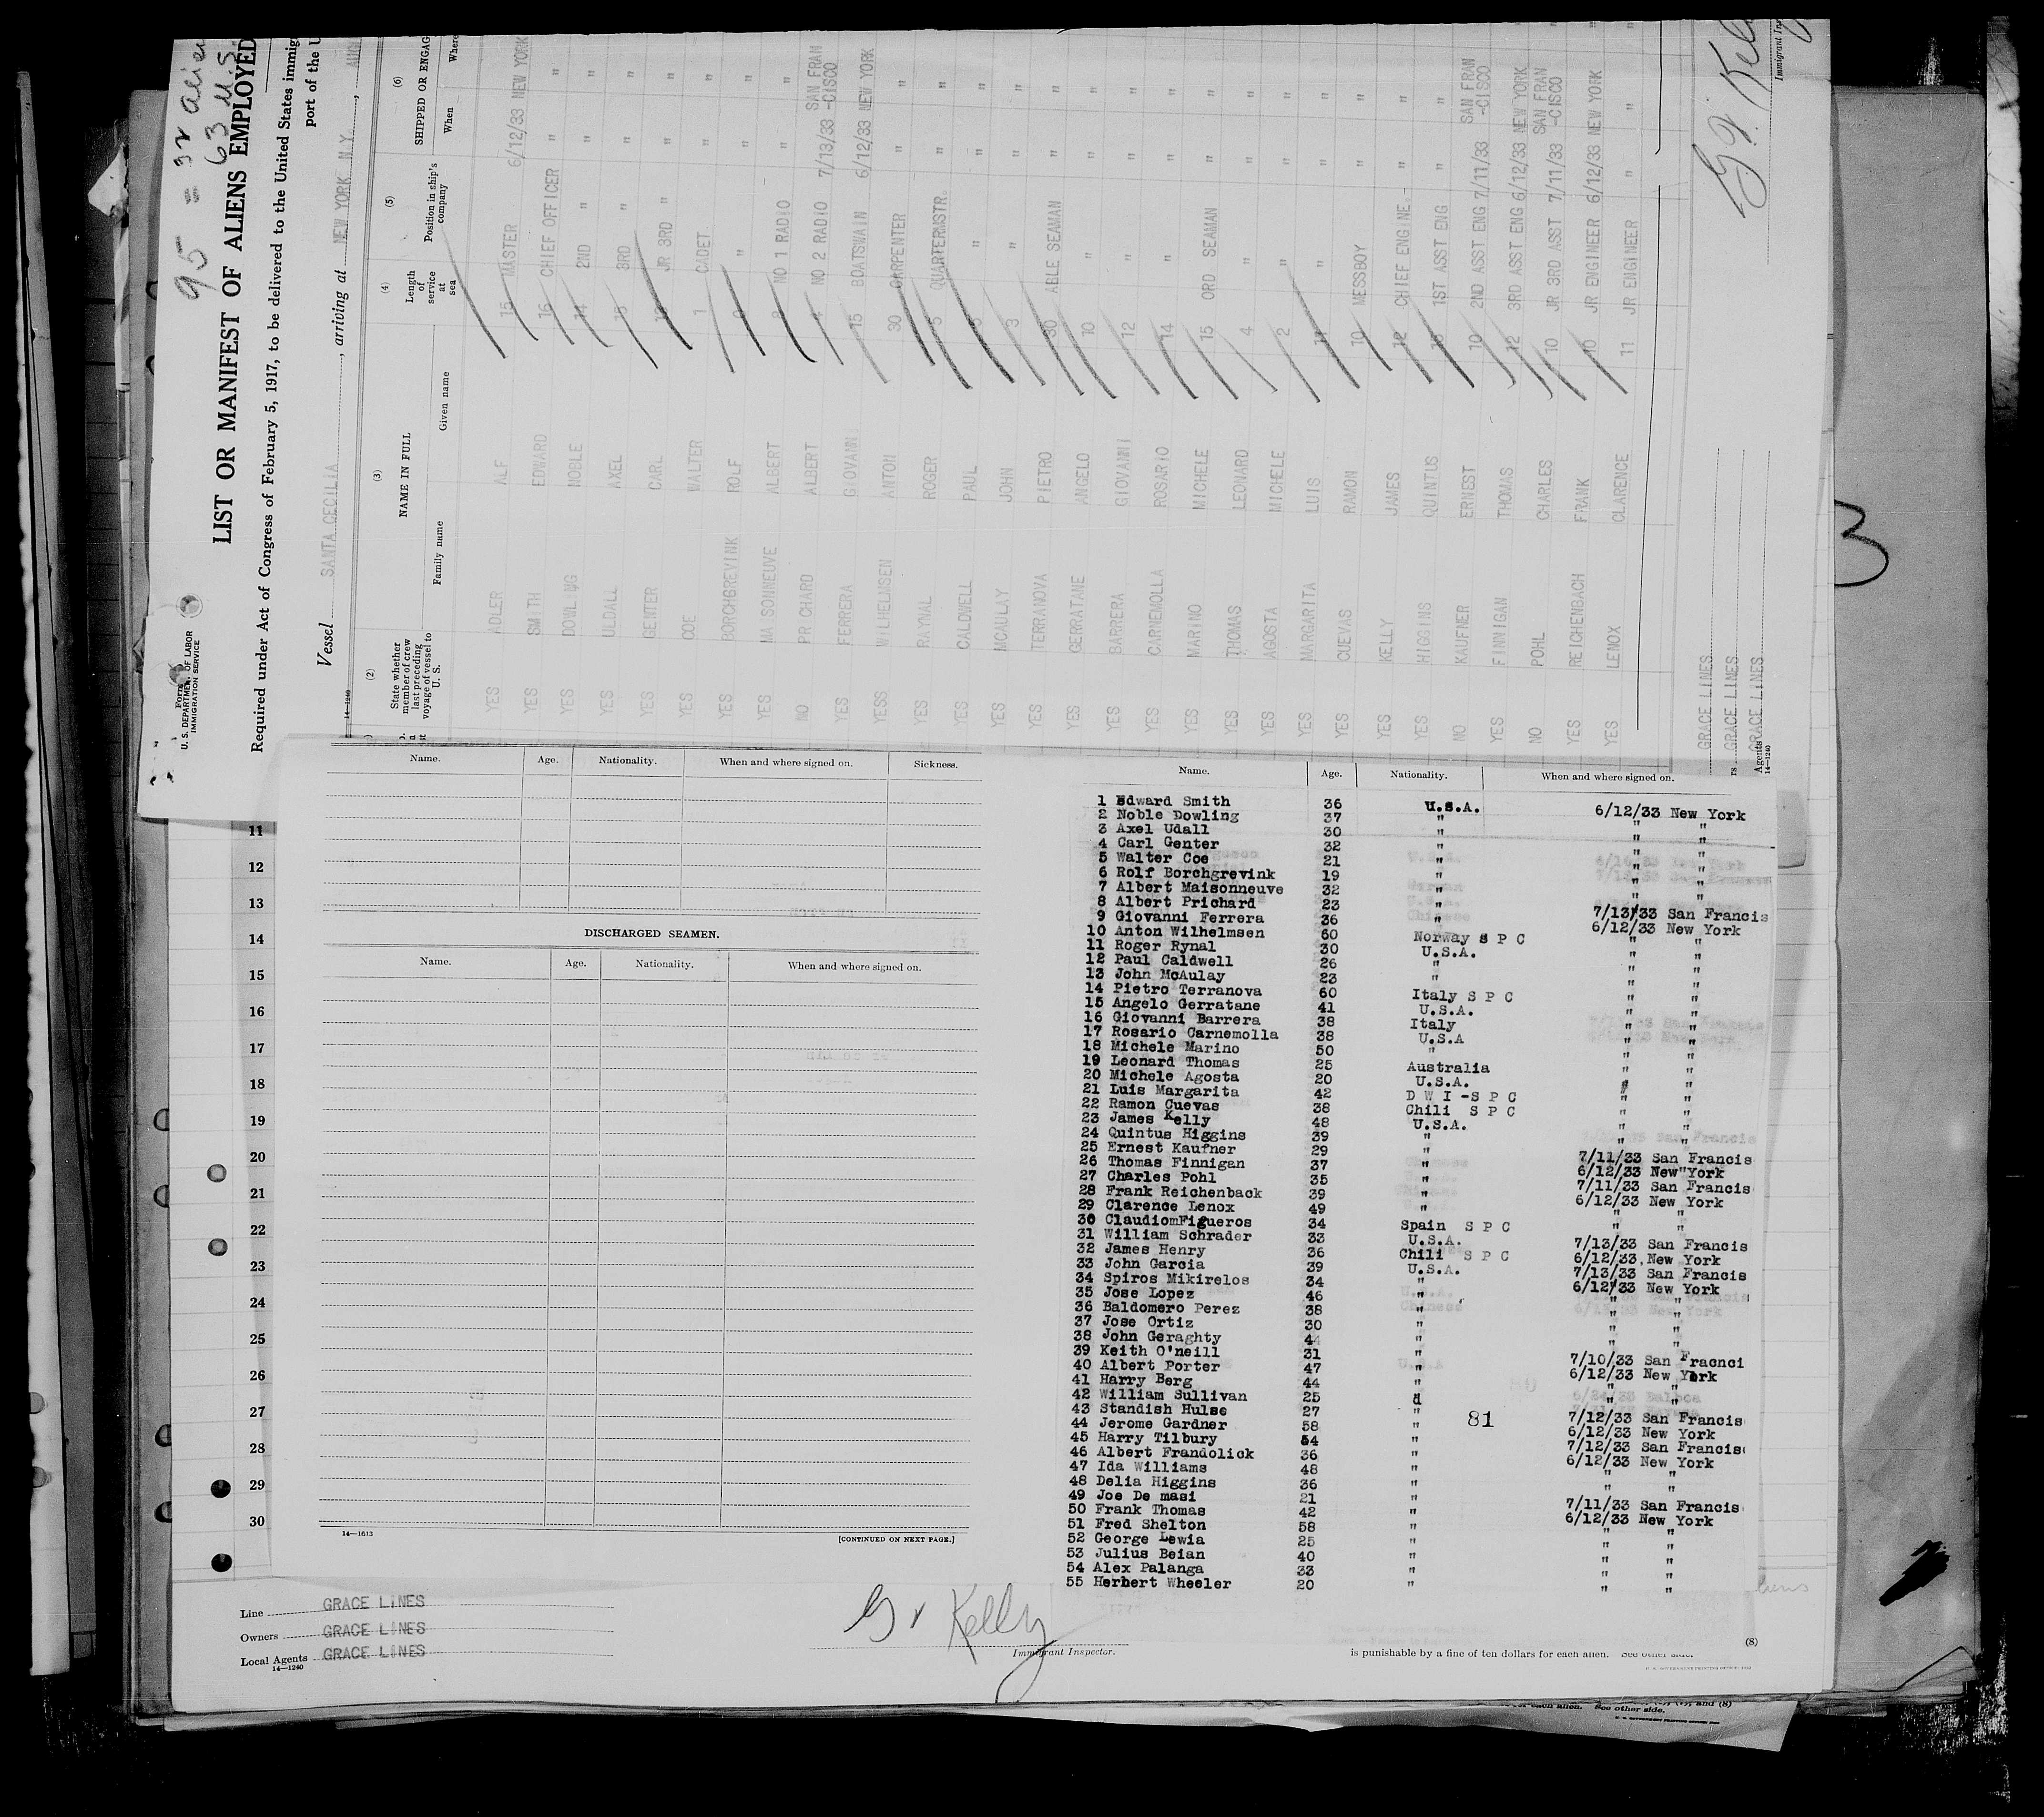 95 = 32
63 U.S.
LIST OR MANIFEST OF ALIENS EMPLOYED
Required under Act of Congress of February 5, 1917, to be delivered to the United States immig
port of the U
U. S. DEPARTMENT OF LABOR
IMMIGRATION SERVICE
Vessel SANTA CECILIA, arriving at NEW YORK N.Y.,
14—1240
(2) (3) (4) (5) (6)
State whether member of crew last preceding voyage of vessel to U. S.
NAME IN FULL
Family name Given name
Length of service at sea
Position in ship's company
SHIPPED OR ENGAG
When Where
YES ADLER ALF 15 MASTER 6/12/33 NEW YORK
YES SMITH EDWARD 16 CHIEF OFFICER " "
YES DOWLING NOBLE 14 2ND " " "
YES ULDALL AXEL 3RD " " "
YES GENTER CARL JR 3RD " " "
YES COE WALTER 1 CADET " "
YES BORCHGREVINK ROLF " " "
YES MAISONNEUVE ALBERT NO 1 RADIO " "
NO PRICHARD ALBERT 4 NO 2 RADIO 7/13/33 SAN FRAN
-CISCO
YES FERRERA GIOVANNI 15 BOATSWAIN 6/12/33 NEW YORK
YESS WILHELMSEN ANTON 30 CARPENTER " "
YES RAYNAL ROGER 5 QUARTERMSTR. " "
YES CALDWELL PAUL " " "
YES MCAULAY JOHN 3 " " "
YES TERRANOVA PIETRO 30 ABLE SEAMAN " "
YES GERRATANE ANGELO 10 " " "
YES BARRERA GIOVANNI 12 " " "
YES CARNEMOLLA ROSARIO 14 " " "
YES MARINO MICHELE 15 ORD SEAMAN " "
YES THOMAS LEONARD 4 " " "
YES AGOSTA MICHELE 2 " " "
YES MARGARITA LUIS " " "
YES CUEVAS RAMON 10 MESSBOY " "
YES KELLY JAMES 12 CHIEF ENGINE. " "
YES HIGGINS QUINTUS 1ST ASST ENG " "
NO KAUFNER ERNEST 10 2ND ASST ENG 7/11/33 SAN FRAN
-CISCO
YES FINNIGAN THOMAS 12 3RD ASST ENG 6/12/33 NEW YORK
NO POHL CHARLES 10 JR 3RD ASST 7/11/33 SAN FRAN
-CISCO
YES REICHENBACH FRANK 10 JR ENGINEER 6/12/33 NEW YORK
YES LENOX CLARENCE 11 JR ENGINEER " "
GRACE LINES
GRACE LINES
GRACE LINES
Agents
14—1240
Immigrant In
3
Name. Age. Nationality. When and where signed on. Sickness.
DISCHARGED SEAMEN.
Name. Age. Nationality. When and where signed on.
14—1613 [CONTINUED ON NEXT PAGE.]
11
12
13
14
15
16
17
18
19
20
21
22
23
24
25
26
27
28
29
30
Name. Age. Nationality. When and where signed on.
1 Edward Smith 36 U.S.A. 6/12/33 New York
2 Noble Dowling 37 " " "
3 Axel Udall 30 " " "
4 Carl Genter 32 " " "
5 Walter Coe 21 " " "
6 Rolf Borchgrevink 19 " " "
7 Albert Maisonneuve 32 " " "
8 Albert Prichard 23 " 7/13/33 San Francis
9 Giovanni Ferrera 36 " 6/12/33 New York
10 Anton Wilhelmsen 60 Norway S P C " "
11 Roger Rynal 30 U.S.A. " "
12 Paul Caldwell 26 " " "
13 John McAulay 23 " " "
14 Pietro Terranova 60 Italy S P C " "
15 Angelo Gerratane 41 U.S.A. " "
16 Giovanni Barrera 38 Italy " "
17 Rosario Carnemolla 38 U.S.A " "
18 Michele Marino 50 " " "
19 Leonard Thomas 25 Australia " "
20 Michele Agosta 20 U.S.A. " "
21 Luis Margarita 42 D W I -S P C " "
22 Ramon Cuevas 38 Chili S P C " "
23 James Kelly 48 U.S.A. " "
24 Quintus Higgins 39 " " "
25 Ernest Kaufner 29 " 7/11/33 San Francis
26 Thomas Finnigan 37 " 6/12/33 New"York
27 Charles Pohl 35 " 7/11/33 San Francis
28 Frank Reichenback 39 " 6/12/33 New York
29 Clarence Lenox 49 " " "
30 ClaudiomFigueros 34 Spain S P C " "
31 William Schrader 33 U.S.A. 7/13/33 San Francis
32 James Henry 36 Chili S P C 6/12/33, New York
33 John Garcia 39 U.S.A. 7/13/33 San Francis
34 Spiros Mikirelos 34 " 6/12/33 New York
35 Jose Lopez 46 " " "
36 Baldomero Perez 38 " " "
37 Jose Ortiz 30 " " "
38 John Geraghty 44 " " "
39 Keith O'neill 31 " 7/10/33 San Fracnci
40 Albert Porter 47 " 6/12/33 New York
41 Harry Berg 44 " " "
42 William Sullivan 25 d " "
43 Standish Hulse 27 " 7/12/33 San Francis
44 Jerome Gardner 58 " 81 6/12/33 New York
45 Harry Tilbury 54 " 7/12/33 San Francis
46 Albert Frandolick 36 " 6/12/33 New York
47 Ida Williams 48 " " "
48 Delia Higgins 36 " " "
49 Joe De masi 21 " 7/11/33 San Francis
50 Frank Thomas 42 " 6/12/33 New York
51 Fred Shelton 58 " " "
52 George Lewia 25 " " "
53 Julius Beian 40 " " "
54 Alex Palanga 33 " " "
55 Herbert Wheeler 20 " " "
Line GRACE LINES
Owners GRACE LINES
Local Agents GRACE LINES
14—1240
G V Kelly
Immigrant Inspector.
(8)
is punishable by a fine of ten dollars for each alien. See other side.
each alien. See other side.
and (8)